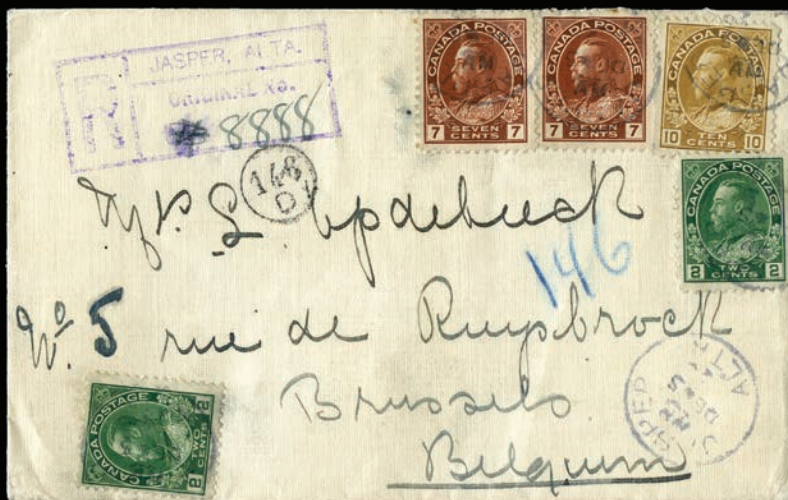 JASPER, ALTA.
R
ORIGINAL No.
8888
CANADA POSTAGE
7 SEVEN CENTS 7
CANADA POSTAGE
7 SEVEN CENTS 7
CANADA POSTAGE
10 TEN CENTS 10
148
D
CANADA POSTAGE
2 TWO CENTS 2
Opdebeeck
146
No 5 rue de Ruysbrock
Brussels
Belgium
JASPER
ALTA
AM
DE
CANADA POSTAGE
2 TWO CENTS 2